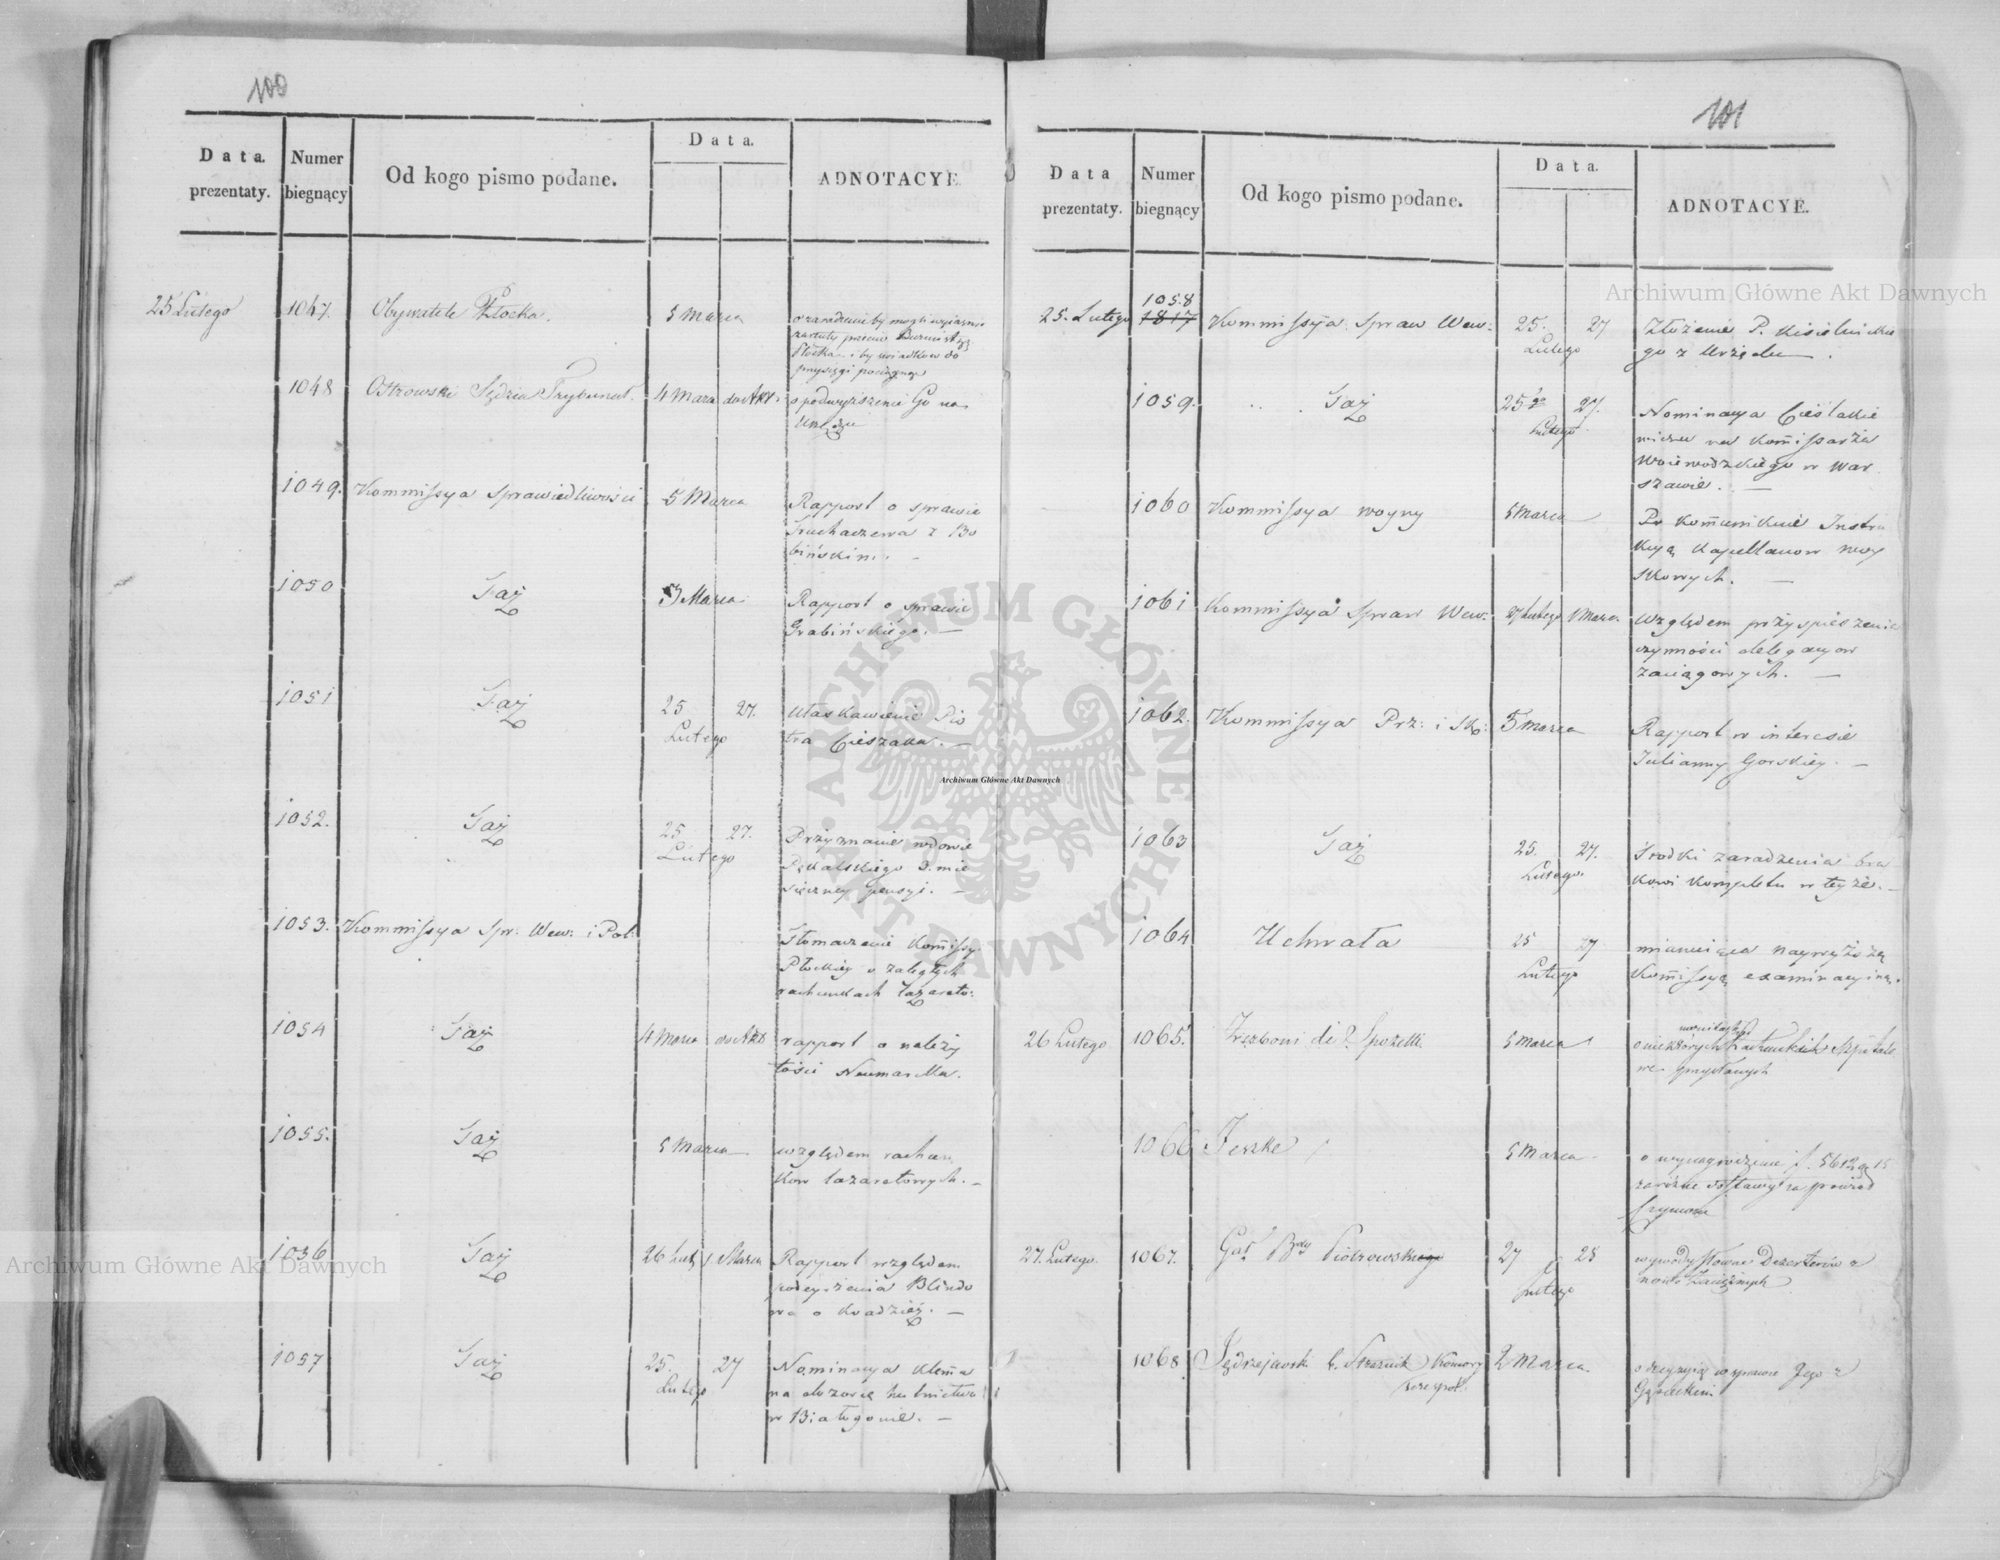 100
Data. prezentaty.
Numer biegnący
Od kogo pismo podane.
Data.
ADNOTACYE.
25 Lutego 1047. Obywatele Płocka. 5 Marca
o zaradzenie by mogli wyjaśnić
zarzuty przeciw Burmistrz
Płocka i by świadków do
przysięgi pociągnąć
1048 Ostrowski Sędzia Trybunał. 4 Marca do Akt. o podwyższenie Go na
Urzędzie
1049. Kommissya Sprawiedliwości 5 Marca Rapport o sprawie
z Bo
bińskim. —
1050 Taż 5 Marca Rapport o sprawie
Grabińskiego. —
1051 Taż 25 27. Ułaskawienie Pio
Lutego tra Cieszaka. —
1052. Taż 25 27. Przyznanie wdowie
Lutego Pękalskiego 3. mie
sięczney pensyi. —
1053. Kommissya Spr: Wew: i Pol: Tłomaczenie Kommissy
Płockiey o zaległych
rachunkach lazareto:
1054 Taż 4 Marca do Akt rapport o należy
tości Neumarka.
1055. Taż 5 Marca względem rachun
kow lazaretowych. —
1056 Taż 26 Lut. 1 Marca Rapport względem
podeyrzenia Blindo
wa o kradzież. —
1057 Taż 25. 27 Nominacya Klema
Lutego na dozorcę hutnictwa
w Białogonie. —
101
Data prezentaty.
Numer biegnący
Od kogo pismo podane.
Data.
ADNOTACYE.
25. Lutego 1058 1817 Kommissya Spraw Wew: 25. 27 Złożenie P. Kisielnickie
Lutego go z Urzędu.
1059. Taż 25 27. Nominacya Cieslakie
Lutego wicza na Kommissarza
Woiewodzkiego w War
szawie. —
1060 Kommissya woyny 5 Marca Po komunikuie Instru
kcyą Kapellanow woy
skowych. —
1061 Kommissya Spraw Wew: 27 Lutego 1 Marca. Względem przyspieszenia
czynności delegacyow
zaciągowych. —
1062. Kommissya Prz: i Sk: 5 Marca Rapport w interesie
Julianny Gorskiey. —
1063 Taż 25. 27. Srodki zaradzenia bra
Lutego. kowi kompletu w teyże. —
1064 Uchwała 25 27 mianuiąca naywyższą
Lutego Kommissyą examinacyiną.
26 Lutego 1065. di Spozetti 5 Marca
o niektórych rachunkach Szpitalo
we przysłanych
1066 Jeszke 5 Marca o wynagrodzenie f. 5612 gr 15
za różne dostawy za powiad
Szymona
27. Lutego. 1067. Gał Bry Piotrowskiego 27 28 wywody słowne Dezerterów z
Lutego nowo Zaciężnych
1068 Jędrzejewski b. Strażnik Komory 2 Marca. o decyzyią w sprawie Jego z
Gąsieckim
Archiwum Główne Akt Dawnych
Archiwum Główne Akt Dawnych
Archiwum Główne Akt Dawnych
ARCHIWUM GŁÓWNE AKT DAWNYCH